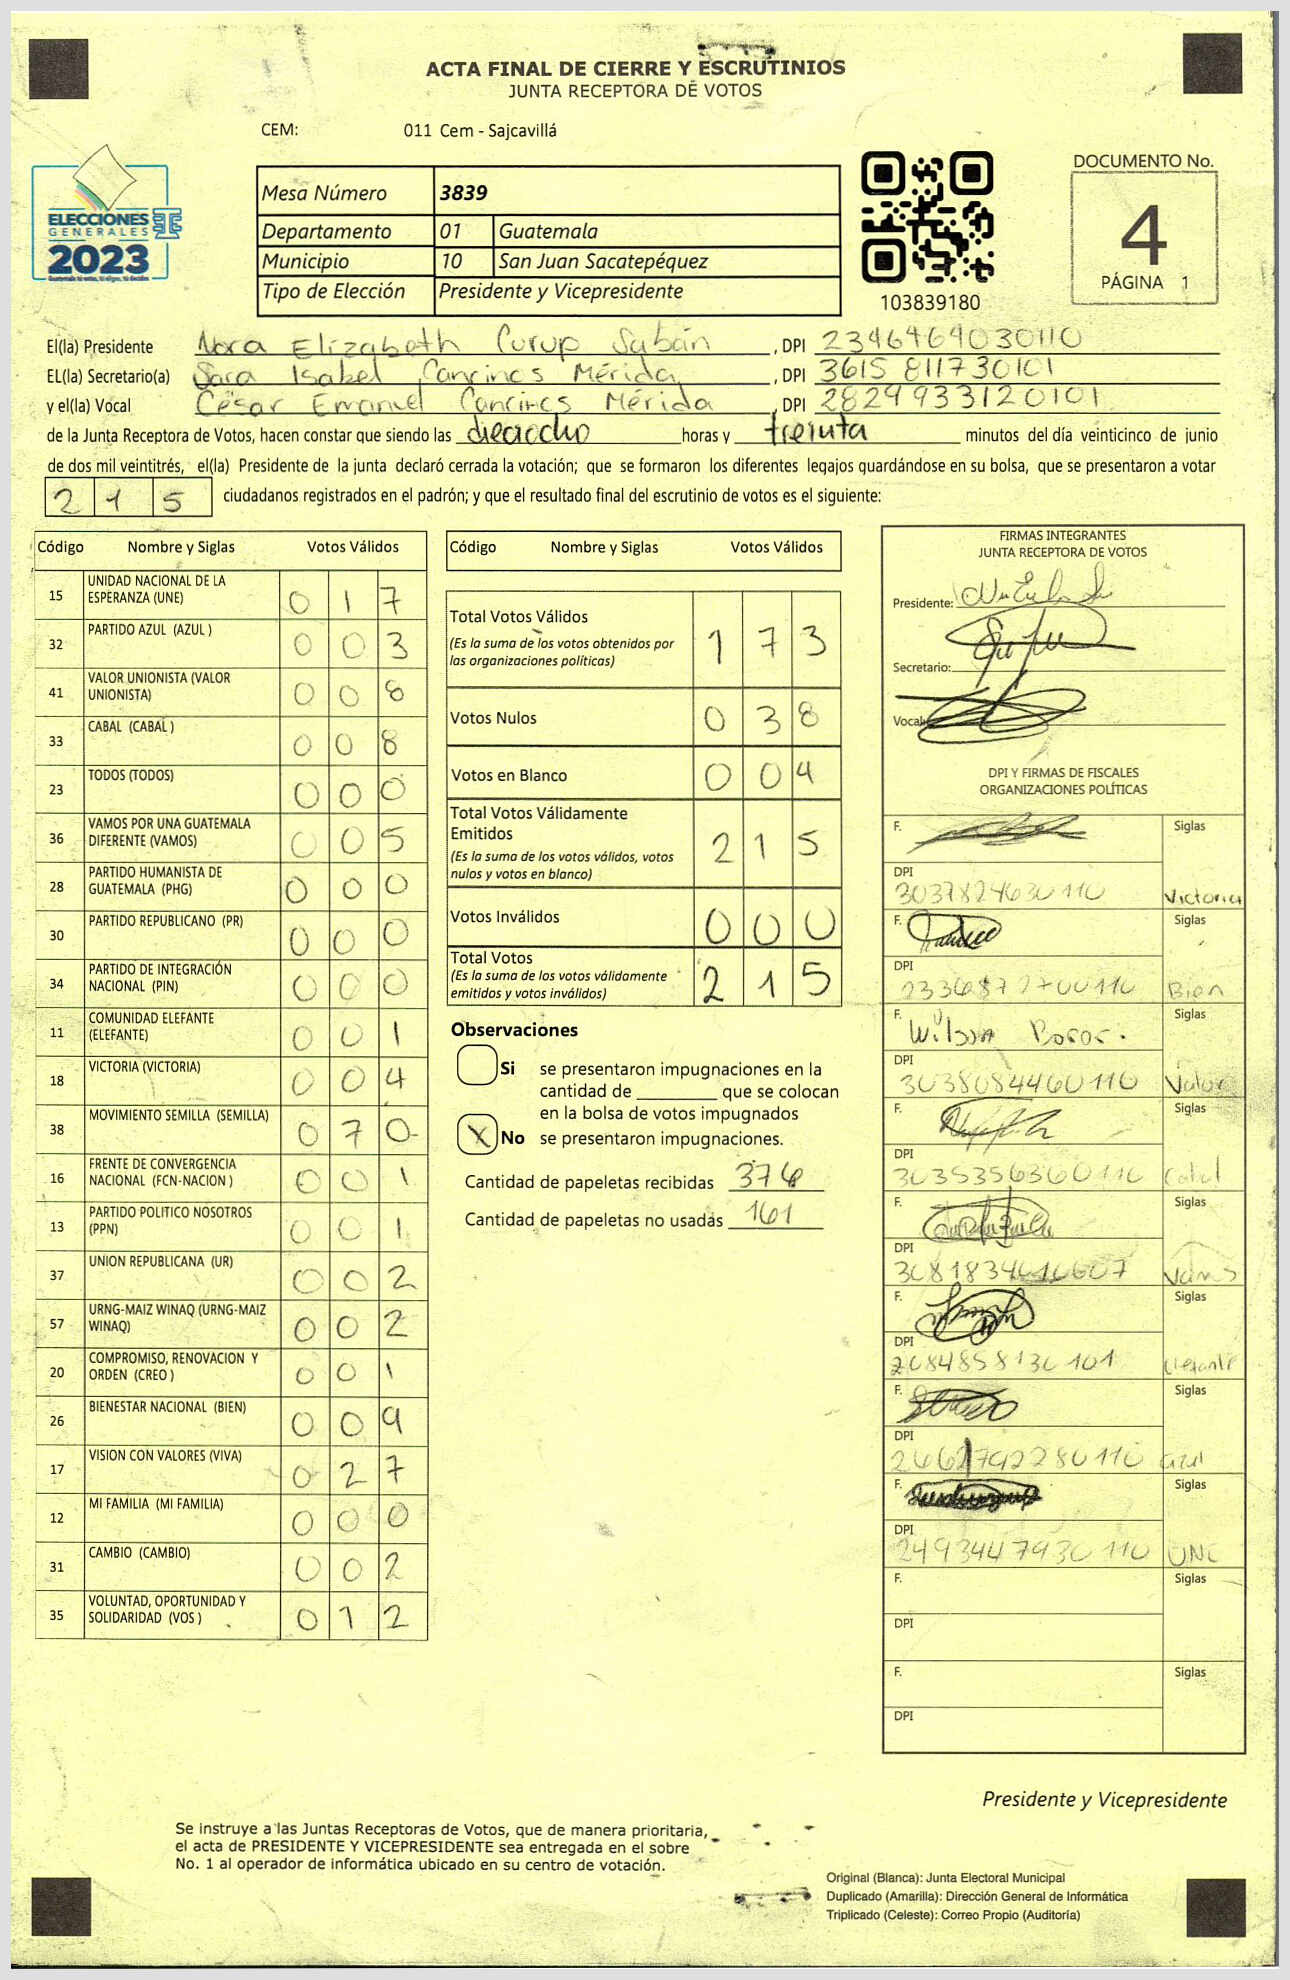 ACTA FINAL DE CIERRE Y ESCRUTINIOS
JUNTA RECEPTORA DE VOTOS
CEM: 011 Cem - Sajcavillá
ELECCIONES
GENERALES
2023
Mesa Número 3839
Departamento 01 Guatemala
Municipio 10 San Juan Sacatepéquez
Tipo de Elección Presidente y Vicepresidente
103839180
DOCUMENTO No.
4
PÁGINA 1
El(la) Presidente Nora Elizabeth Curup Sabán, DPI 2346464030110
EL(la) Secretario(a) Sara Isabel Cancinos Mérida, DPI 3615 811730101
y el(la) Vocal César Emanuel Cancinos Mérida, DPI 2824933120101
de la Junta Receptora de Votos, hacen constar que siendo las dieciocho horas y treinta minutos del día veinticinco de junio
de dos mil veintitrés, el(la) Presidente de la junta declaró cerrada la votación; que se formaron los diferentes legajos guardándose en su bolsa, que se presentaron a votar
215 ciudadanos registrados en el padrón; y que el resultado final del escrutinio de votos es el siguiente:
Código Nombre y Siglas Votos Válidos
15 UNIDAD NACIONAL DE LA ESPERANZA (UNE) 0 1 7
32 PARTIDO AZUL (AZUL ) 0 0 3
41 VALOR UNIONISTA (VALOR UNIONISTA) 0 0 8
33 CABAL (CABAL ) 0 0 8
23 TODOS (TODOS) 0 0 0
36 VAMOS POR UNA GUATEMALA DIFERENTE (VAMOS) 0 0 5
28 PARTIDO HUMANISTA DE GUATEMALA (PHG) 0 0 0
30 PARTIDO REPUBLICANO (PR) 0 0 0
34 PARTIDO DE INTEGRACIÓN NACIONAL (PIN) 0 0 0
11 COMUNIDAD ELEFANTE (ELEFANTE) 0 0 1
18 VICTORIA (VICTORIA) 0 0 4
38 MOVIMIENTO SEMILLA (SEMILLA) 0 7 0
16 FRENTE DE CONVERGENCIA NACIONAL (FCN-NACION ) 0 0 1
13 PARTIDO POLITICO NOSOTROS (PPN) 0 0 1
37 UNION REPUBLICANA (UR) 0 0 2
57 URNG-MAIZ WINAQ (URNG-MAIZ WINAQ) 0 0 2
20 COMPROMISO, RENOVACION Y ORDEN (CREO ) 0 0 1
26 BIENESTAR NACIONAL (BIEN) 0 0 9
17 VISION CON VALORES (VIVA) 0 2 7
12 MI FAMILIA (MI FAMILIA) 0 0 0
31 CAMBIO (CAMBIO) 0 0 2
35 VOLUNTAD, OPORTUNIDAD Y SOLIDARIDAD (VOS ) 0 1 2
Código Nombre y Siglas Votos Válidos
Total Votos Válidos 1 7 3
(Es la suma de los votos obtenidos por
las organizaciones políticas)
Votos Nulos 0 3 8
Votos en Blanco 0 0 4
Total Votos Válidamente
Emitidos 2 1 5
(Es la suma de los votos válidos, votos
nulos y votos en blanco)
Votos Inválidos 0 0 0
Total Votos 2 1 5
(Es la suma de los votos válidamente
emitidos y votos inválidos)
Observaciones
Si se presentaron impugnaciones en la
cantidad de ________ que se colocan
en la bolsa de votos impugnados
X No se presentaron impugnaciones.
Cantidad de papeletas recibidas 376
Cantidad de papeletas no usadas 161
FIRMAS INTEGRANTES
JUNTA RECEPTORA DE VOTOS
Presidente:
Secretario:
Vocal:
DPI Y FIRMAS DE FISCALES
ORGANIZACIONES POLÍTICAS
F. Siglas
DPI
3037824630110 Victoria
F. Siglas
DPI
Bien
F. Wilson Boror. Siglas
DPI
3038084460110 Valor
F. Siglas
DPI
3035356360110 Cabal
F. Siglas
DPI
Vamos
F. Siglas
DPI
2084858130101 Elefante
F. Siglas
DPI
2462792280110 azul
F. Siglas
DPI
2493447930110 UNE
F. Siglas
DPI
F. Siglas
DPI
Presidente y Vicepresidente
Se instruye a las Juntas Receptoras de Votos, que de manera prioritaria,
el acta de PRESIDENTE Y VICEPRESIDENTE sea entregada en el sobre
No. 1 al operador de informática ubicado en su centro de votación.
Original (Blanca): Junta Electoral Municipal
Duplicado (Amarilla): Dirección General de Informática
Triplicado (Celeste): Correo Propio (Auditoría)